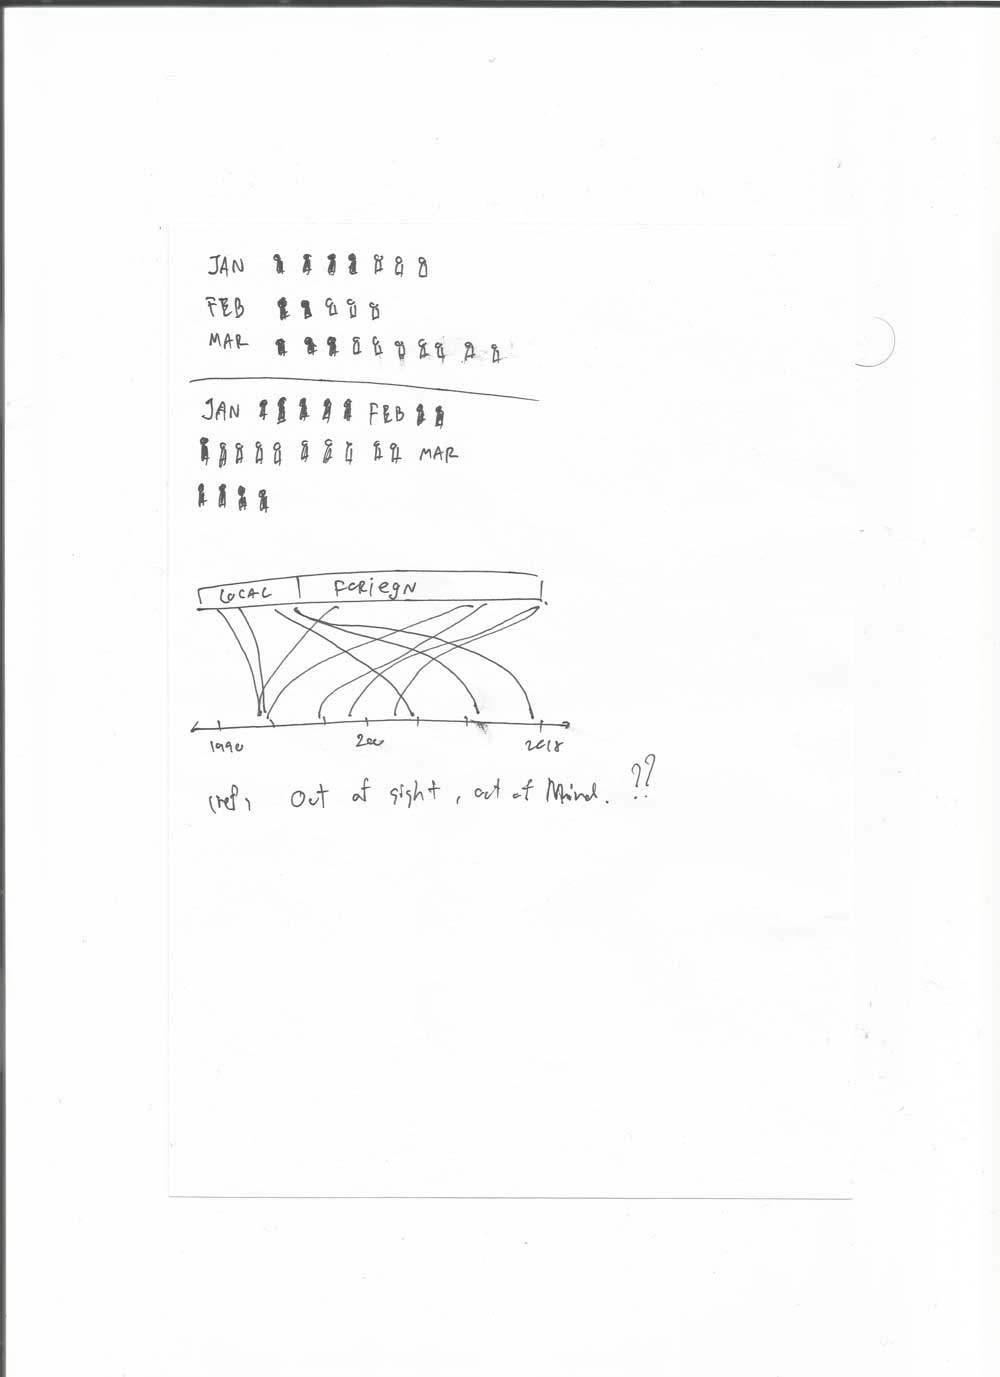 JAN
FEB
MAR
JAN FEB
MAR
LOCAL FORIEGN
1990 200 2018
(ref, Out of sight, out of Mind. ??